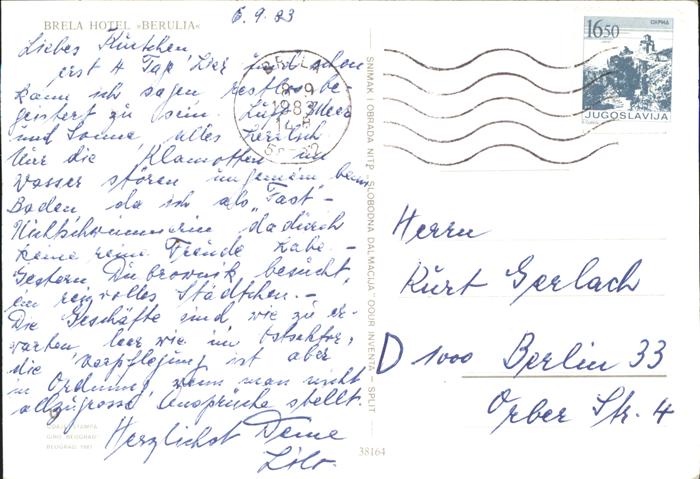 6.9.83
BRELA HOTEL »BERULJA«
Liebes Kürtchen
erst 4 Tage hier und schon
kann ich sagen restlos be-
geistert zu sein. Luft Meer
und Sonne alles herrlich
Nur die Klamotten im
Wasser stören ungemein beim
Baden, da ich als "Fast"-
Nichtschwimmerin dadurch
keine reine Freude habe.-
Gestern Dubrovnik besucht,
ein reizvolles Städtchen.-
Die Geschäfte sind wie zu er-
warten, leer wie im Ostsektor,
die Verpflegung ist aber
in Ordnung, wenn man nicht
allzugrosse Ansprüche stellt.
Herzlichst Deine
Lilo.
ŠTAMPA
GIRO BEOGRAD
BEOGRAD 1981
SNIMAK I OBRADA NITP „SLOBODNA DALMACIJA" OOUR INVENTA — SPLIT
38164
BRELA
8-9
1983
14 H
16 50
JUGOSLAVIJA
Herrn
Kurt Gerlach
D 1000 Berlin 33
Orber Str. 4